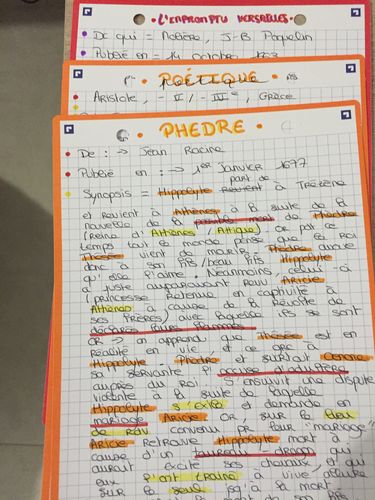 • L'ENPROMPTU VERSAILLES •
• De qui = Molière, J-B Poquelin
• Publié en = 14 octobre 1663
POÉTIQUE
• Aristote, - II / - III e, Grèce
• PHEDRE •
• De : → Jean Racine
• Publié en : → 1er Janvier 1677
• Synopsis = Hippolyte part de à Trézène
et Revient à Athènes à la suite de la
nouvelle de la mort de Thésée
(Reine d'Athènes / Attique) or par ce
temps tout le monde pense que le Roi
Thésée vient de mourir. Phèdre avoue
donc à son fils Hippolyte
qu'elle l'aime. Néanmoins, celui-ci
a juste auparavant Aricie
(princesse Retenue en captivité à
Athènes à cause de Révolte de
ses frères) avec laquelle ils se sont
déclarés
OR → on apprend que Thésée est en
Réalité en vie et
Hippolyte. Phèdre et surtout Oenone
sa servante l'accuse d'adultère
auprès du Roi. S'ensuivit une dispute
violente à la suite de laquelle
Hippolyte s'exile et demande en
mariage Aricie OR, sur le lieu
de RDV convenu pr leur "mariage"
Aricie Retrouve Hippolyte mort à
cause d'un taureau dragon qui
aurait excité ses chevaux, et qui
eux l'ont trainé à vive allure
sur la jusqu'à la mort